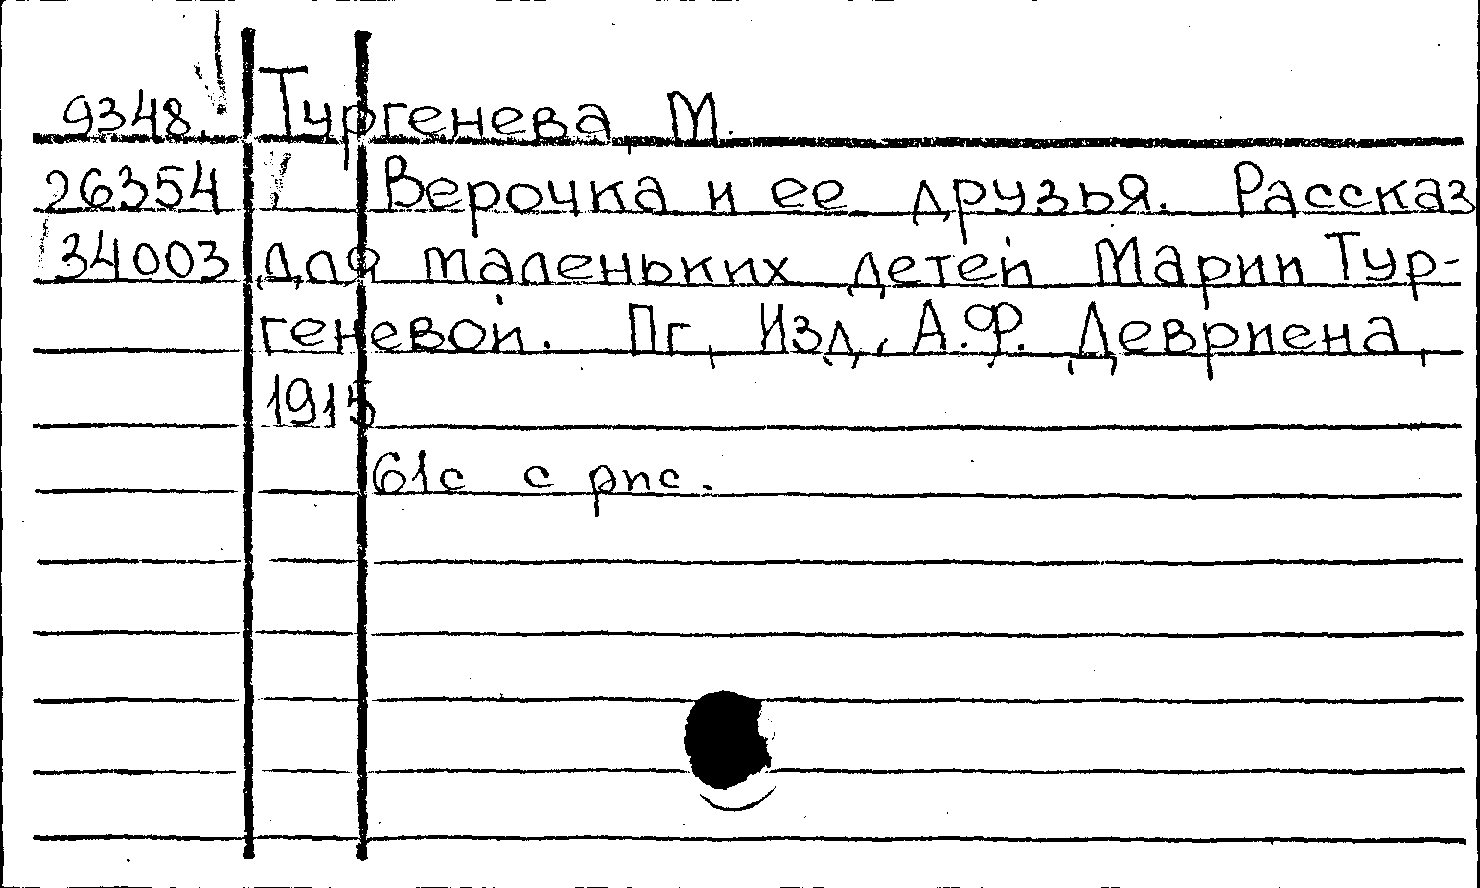 9348. Тургенева, М.
26354 Верочка и ее друзья. Рассказ
34003 для маленьких детей Марии Тур-
геневой. Пг, Изд, А.Ф. Девриена,
1915
61с с рис.